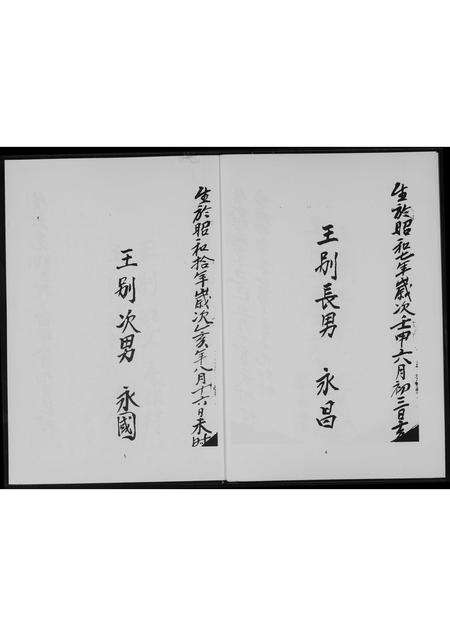 生於昭和七年歲次壬申六月初三日
王别長男 永昌
生於昭和拾年歲次乙亥年八月十六日未時
王别次男 永國